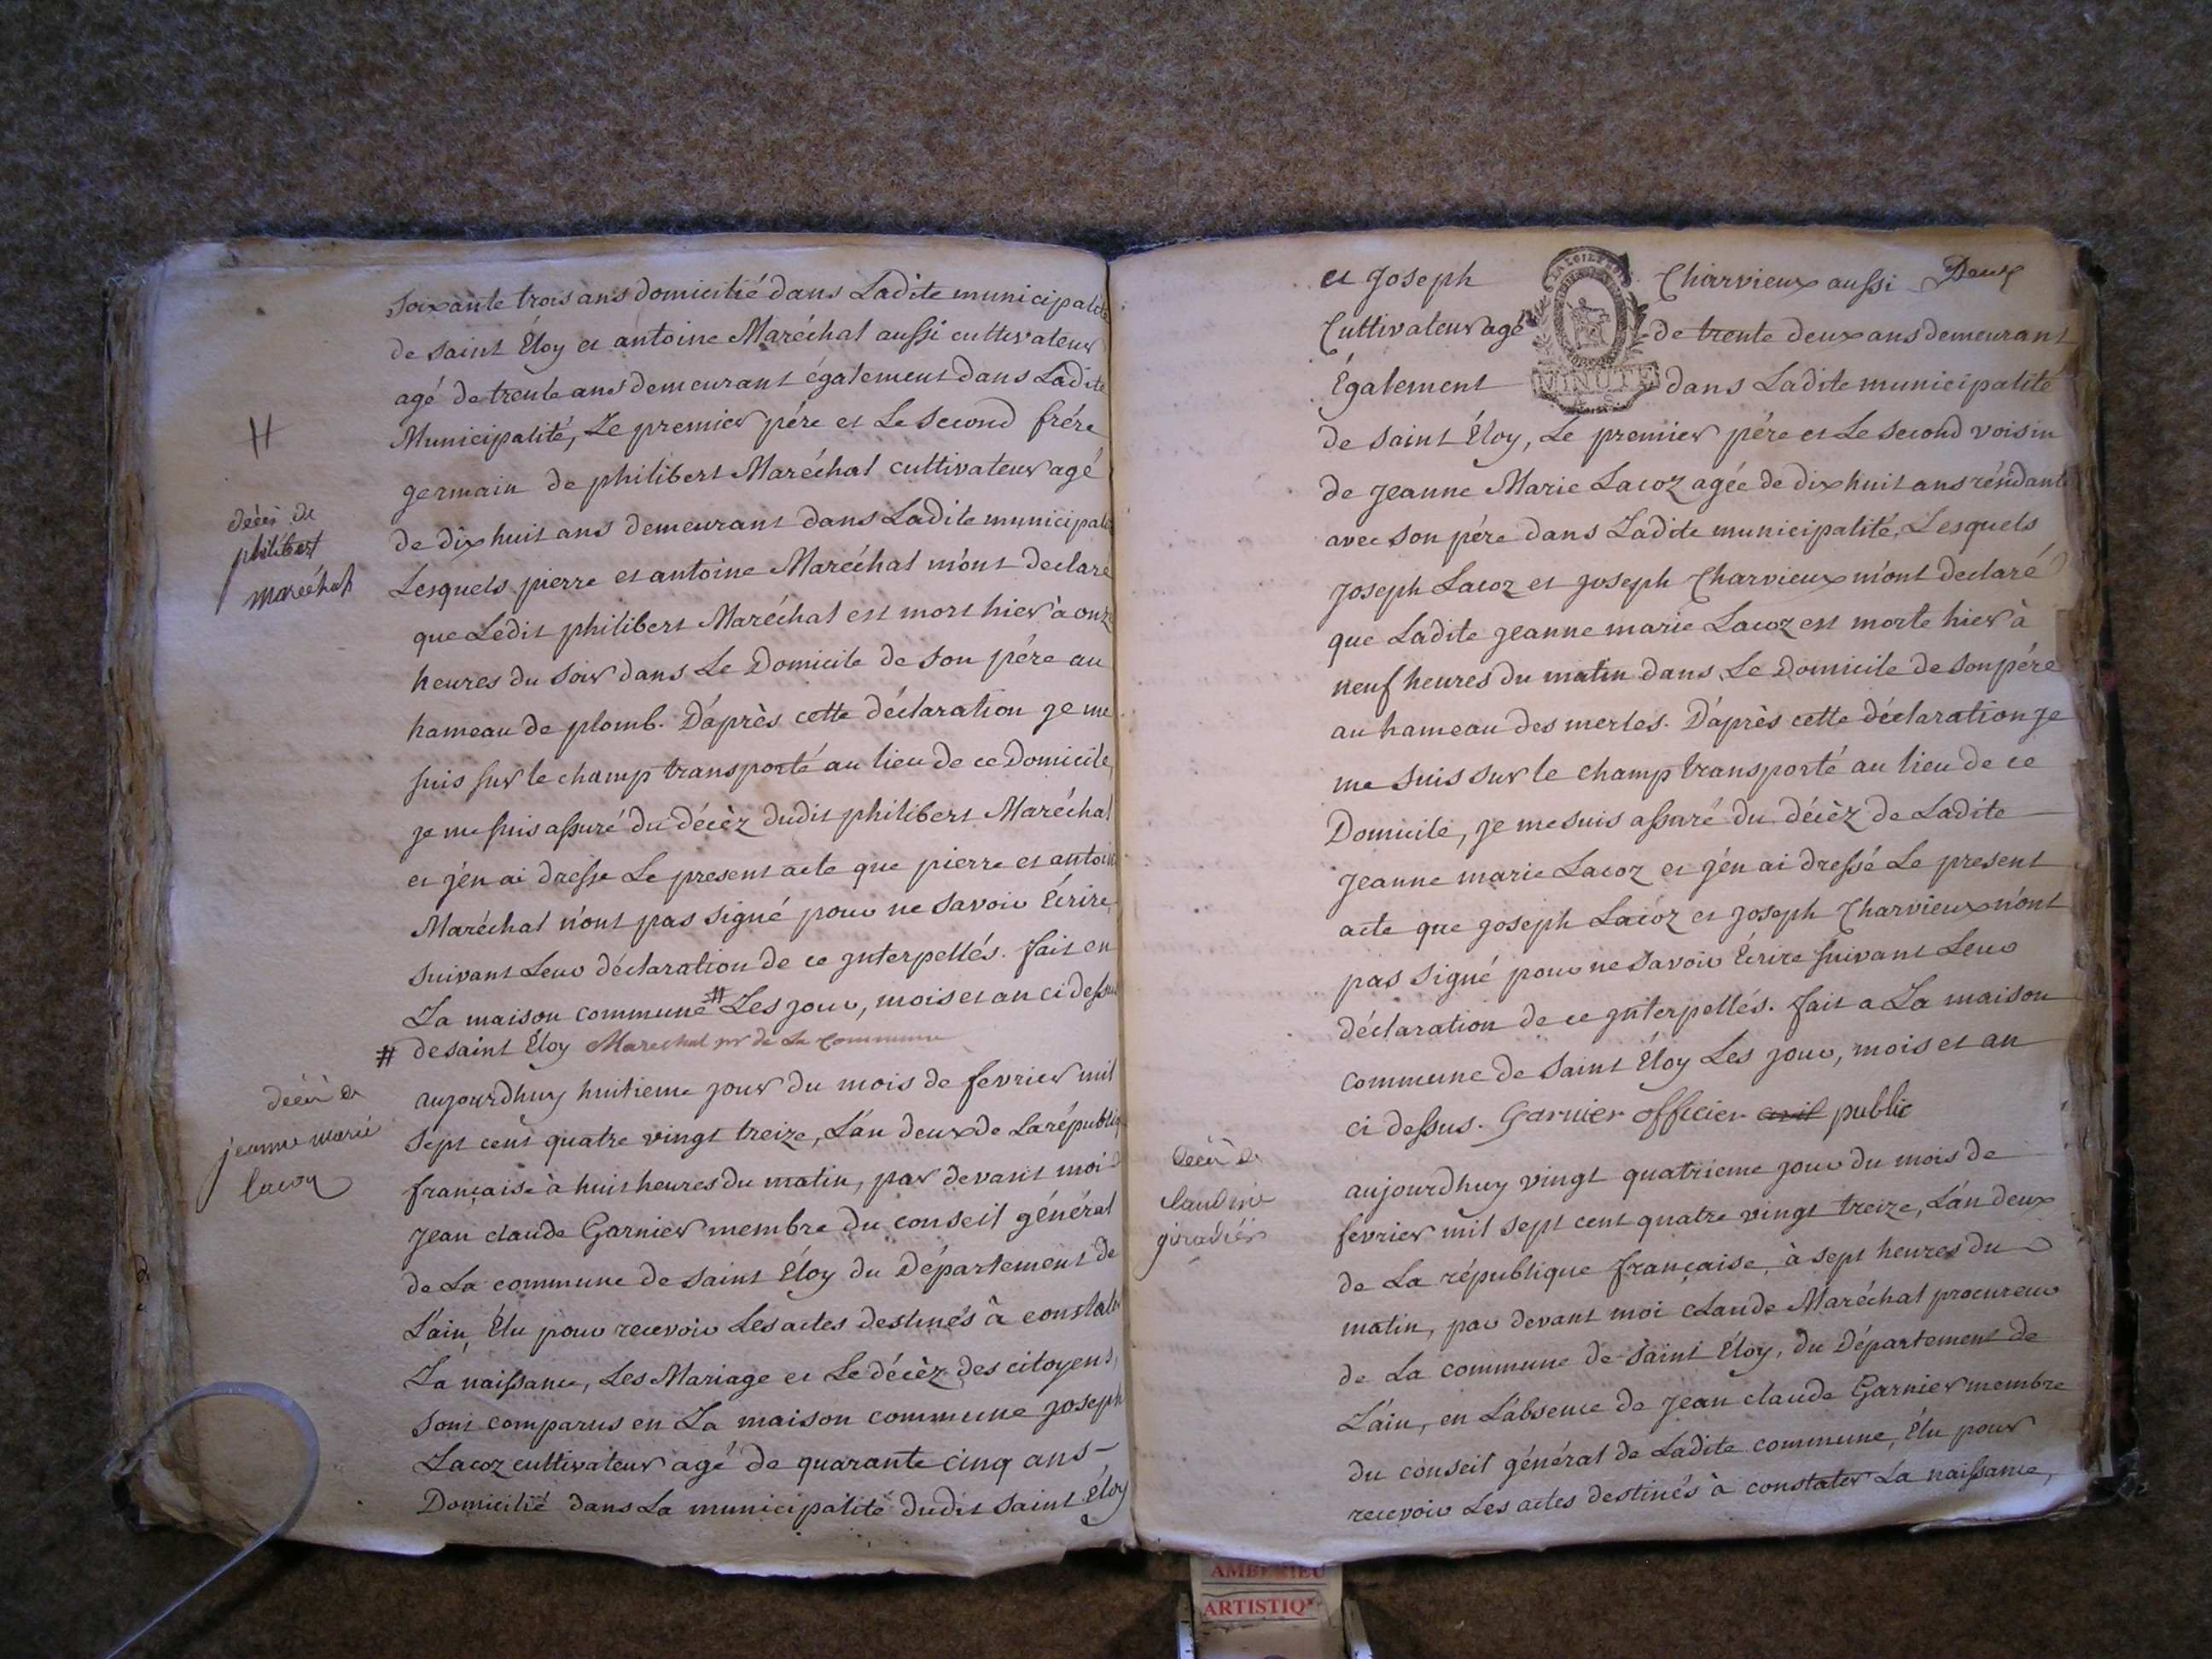 soixante trois ans domicilié dans Ladite municipalité
de saint Éloy et antoine Maréchal aussi cultivateur
agé de trente ans demeurant également dans Ladite
Municipalité, Le premier pére et Le second frére
germain de philibert Maréchal cultivateur agé
de dix huit ans demeurant dans Ladite municipalité
Lesquels pierre et antoine Maréchal m'ont declaré
que Ledit philibert Maréchal est mort hier à onze
heures du soir dans Le Domicile de son pére au
hameau de plomb. D'après cette déclaration je me
suis sur le champ transporté au lieu de ce Domicile,
je me suis assuré du décèz dudit philibert Maréchal
et j'en ai dressé Le present acte que pierre et antoine
Maréchal n'ont pas signé pour ne savoir Écrire,
suivant Leur déclaration de ce interpellés. fait en
La maison commune # Les jour, mois et an ci dessus
# de saint Éloy Marechal pr de La Commune
H
décès de
philibert
maréchal
décès de
jeanne marie
lacoz
aujourdhuy huitieme jour du mois de fevrier mil
sept cent quatre vingt treize, L'an deux de La républiq
française à huit heures du matin, par devant moi
jean claude Garnier membre du conseil général
de La commune de saint Éloy du Département de
L'ain, Élu pour recevoir Les actes destinés à constater
La naissance, Les Mariage et Le décèz des citoyens,
sont comparus en La maison commune joseph
Lacoz cultivateur agé de quarante cinq ans
Domicilié dans La municipalité dudit saint Éloy
et joseph Charvieux aussi Deux
Cultivateur agé de trente deux ans demeurant
Également dans Ladite municipalité
MINUTE
de saint Éloy, Le premier pére et Le second voisin
de jeanne Marie Lacoz agée de dix huit ans résidante
avec son pére dans Ladite municipalité, Lesquels
joseph Lacoz et joseph Charvieux m'ont declaré
que Ladite jeanne marie Lacoz est morte hier à
neuf heures du matin dans Le Domicile de son pére
au hameau des merles. D'après cette déclaration je
me suis sur le champ transporté au lieu de ce
Domicile, je me suis assuré du décèz de Ladite
jeanne marie Lacoz et j'en ai dressé Le present
acte que joseph Lacoz et joseph Charvieux n'ont
pas signé pour ne savoir Écrire suivant Leur
déclaration de ce interpellés. fait a La maison
commune de saint Éloy Les jour, mois et an
ci dessus. Garnier officier civil public
décès de
claudine
giradier
aujourdhuy vingt quatrieme jour du mois de
fevrier mil sept cent quatre vingt treize, L'an deux
de La république française, à sept heures du
matin, par devant moi claude Maréchal procureur
de La commune de saint Éloy, du Département de
L'ain, en L'absence de jean claude Garnier membre
du conseil général de Ladite commune, Élu pour
recevoir Les actes destinés à constater La naissance,
ARTISTIQ